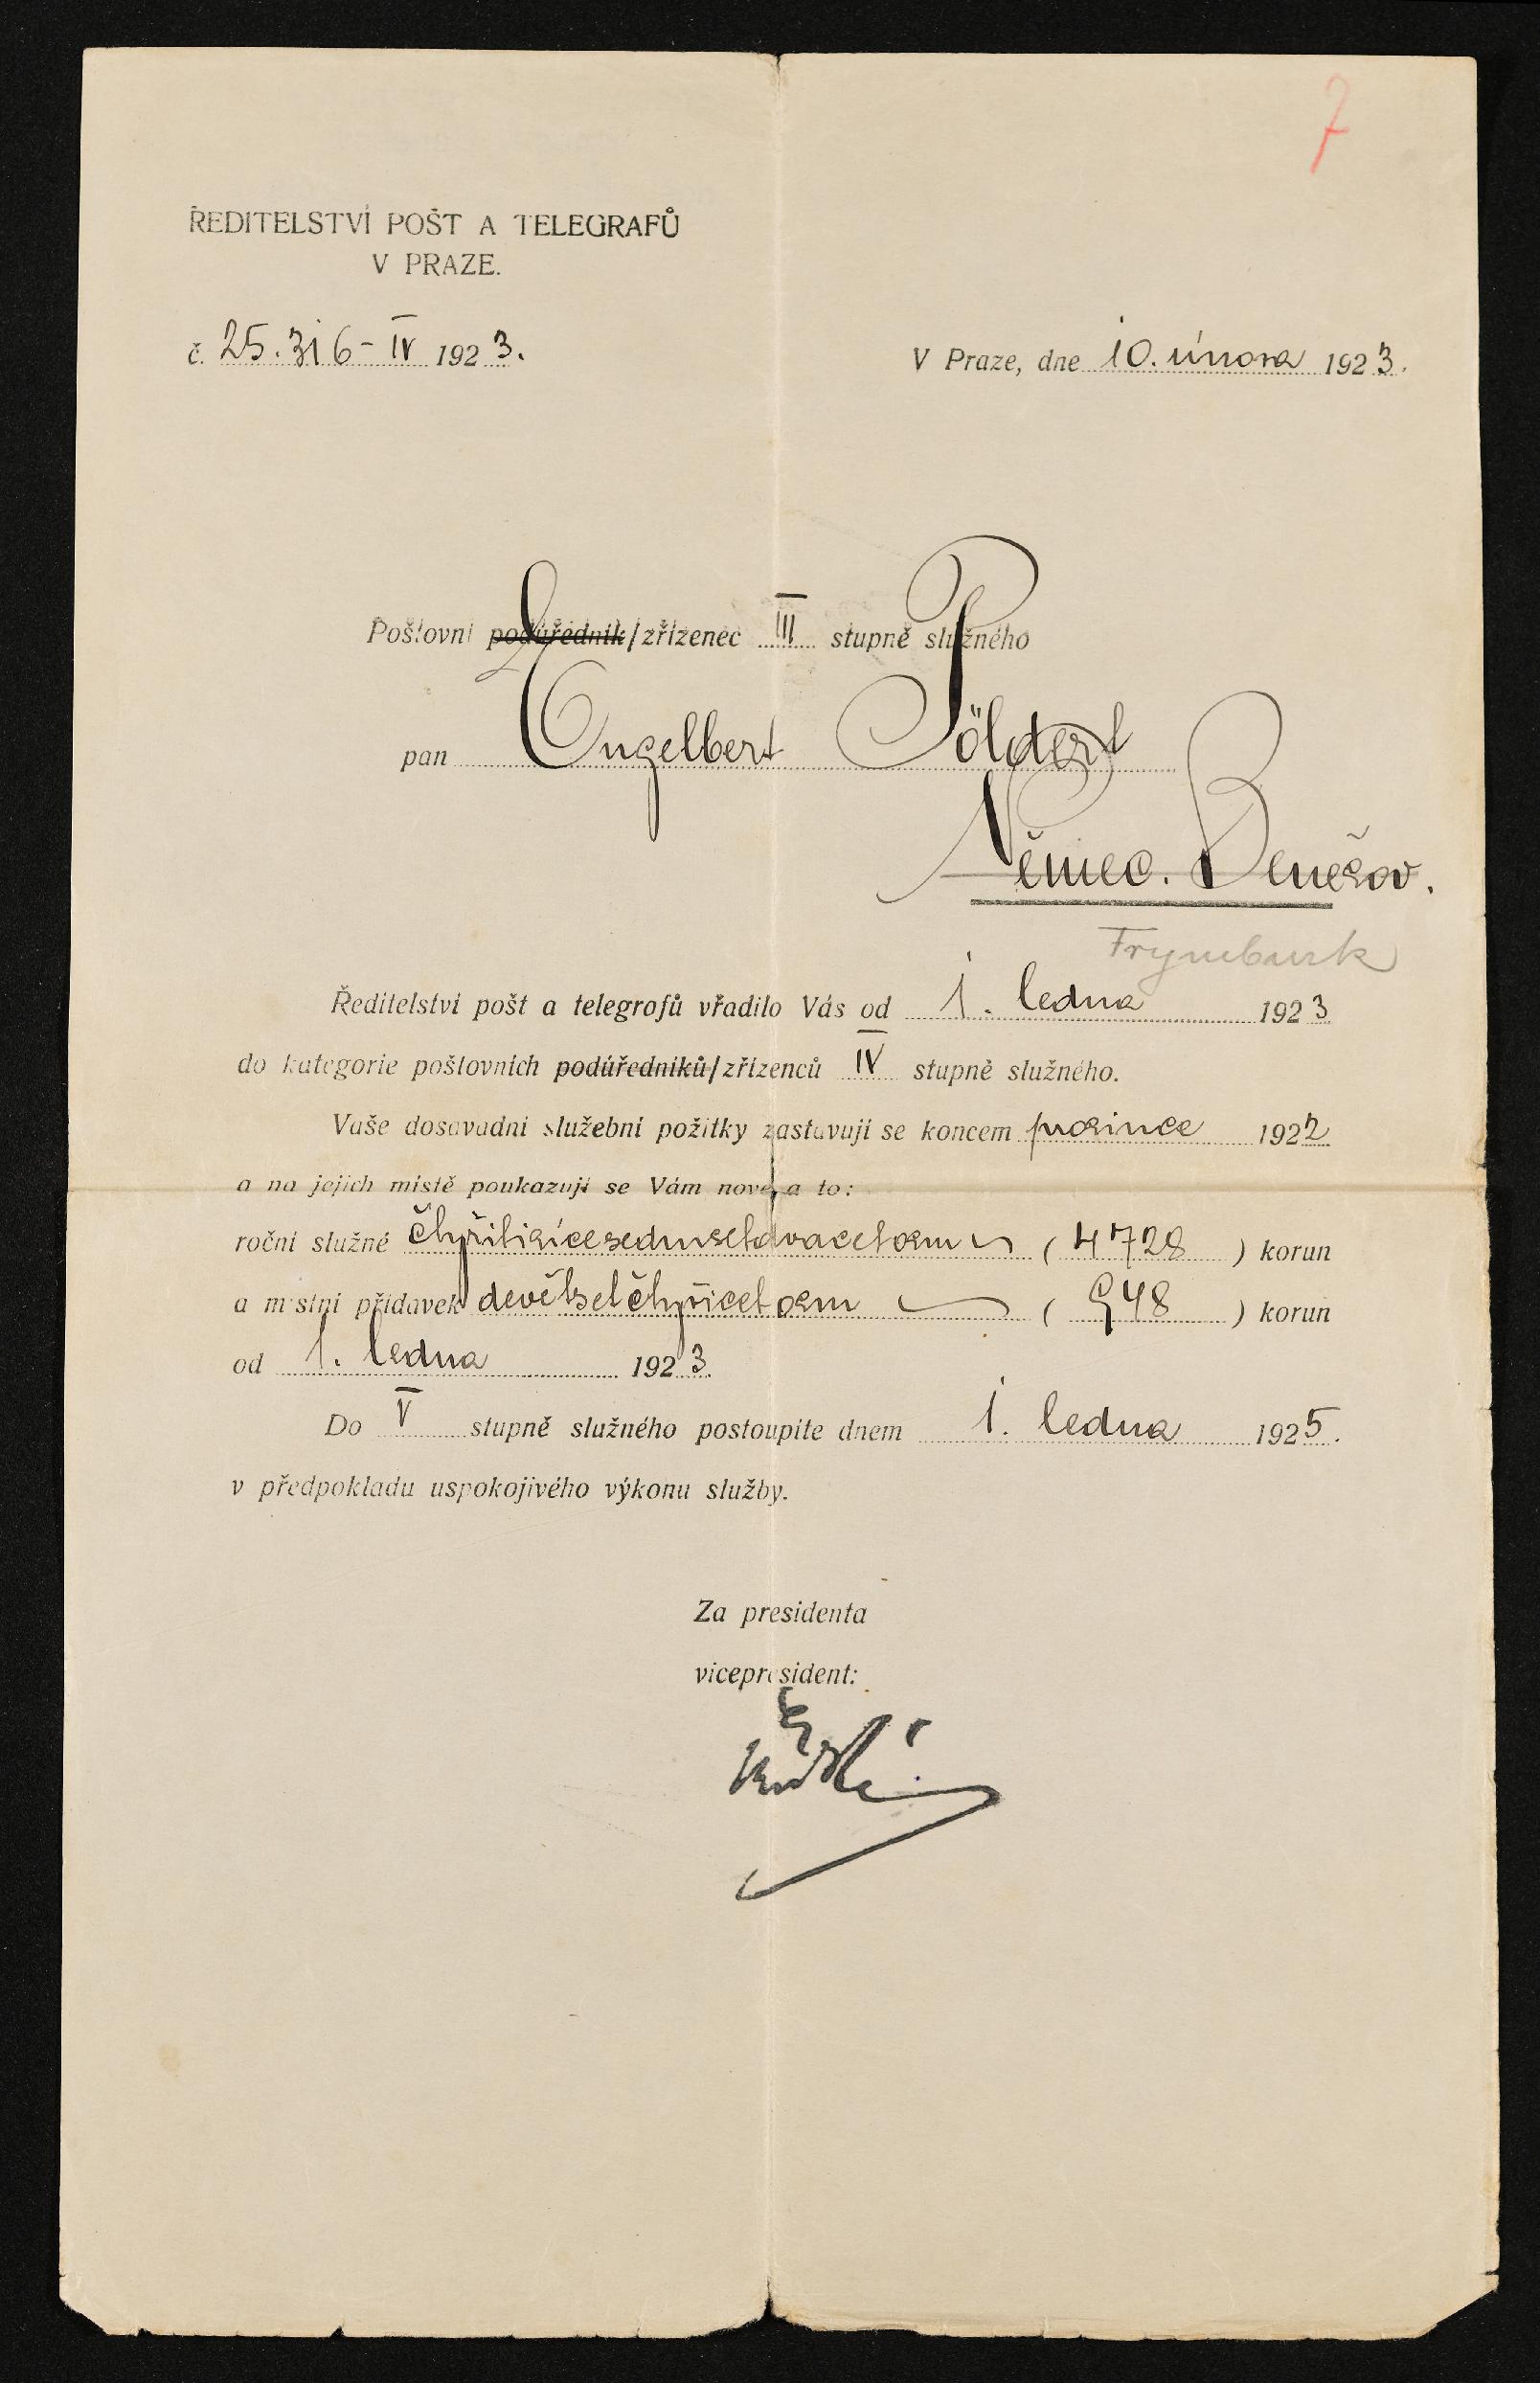 7
ŘEDITELSTVÍ POŠT A TELEGRAFŮ
V PRAZE.
č. 25.316-IV 1923.
V Praze, dne 10. února 1923.
Poštovní podúředník/zřízenec III stupně služného
pan Engelbert Pöldert
Němec. Benešov.
Frymburk
Ředitelství pošt a telegrafů vřadilo Vás od 1. ledna 1923
do kategorie poštovních podúředníků/zřízenců IV stupně služného.
Vaše dosavadní služební požitky zastavují se koncem prosince 1922
a na jejich místě poukazují se Vám nové a to:
roční služné čtyřitisícesedmsetdvacetosm (4728) korun
a místní přídavek devětsetčtyřicetosm (948) korun
od 1. ledna 1923.
Do V stupně služného postoupíte dnem 1. ledna 1925.
v předpokladu uspokojivého výkonu služby.
Za presidenta
vicepresident: